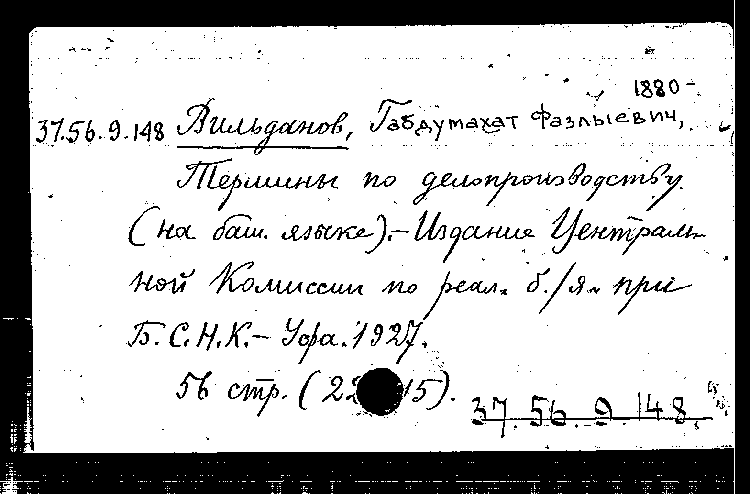 1880-
37.56.9.148 Вильданов, Габдулахат Фазлыевич,
Термины по делопроизводству
(на баш. языке).- Издание Централь-
ной Комиссии по реал. б./я. при
Б.С.Н.К.- Уфа. 1927.
56 стр. (22 15).
37.56.9.148.